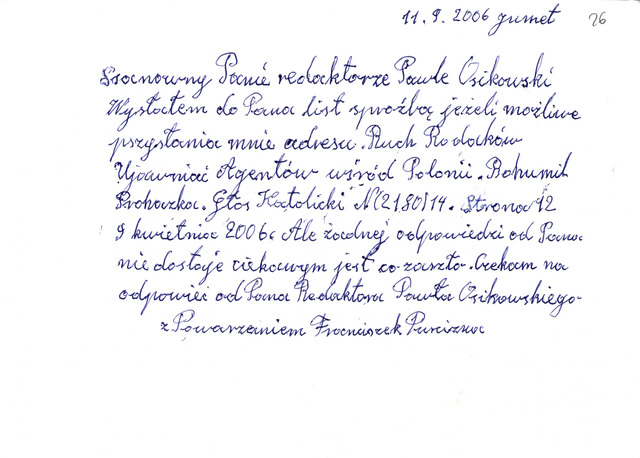 11.9.2006 jumet 26
Szacnowny Panie redaktorze Pawle Osikowski
Wysłałem do Pana list sproźbą jeżeli możliwe
przysłania mnie adresu. Ruch Rodaków
Ujawniać Agentów wśród Polonii. Bohumil
Prohazka. Głos Katolicki N(2180)14. Strona 12
9 kwietnia 2006. Ale żadnej odpowiedzi od Pana
nie dostaje ciekawym jest co zaszło. Czekam na
odpowieć od Pana Redaktora Pawła Osikowskiego.
z Powarzaniem Franciszek